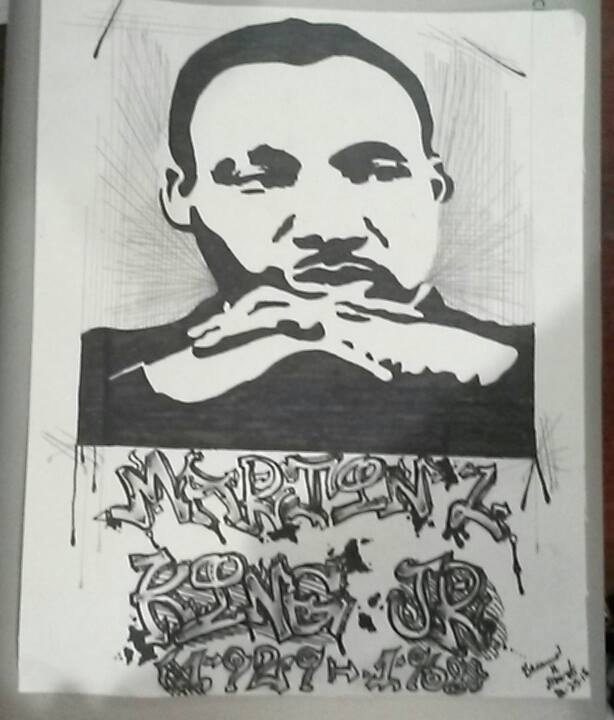 MARTIN L
KING JR
1929-1968